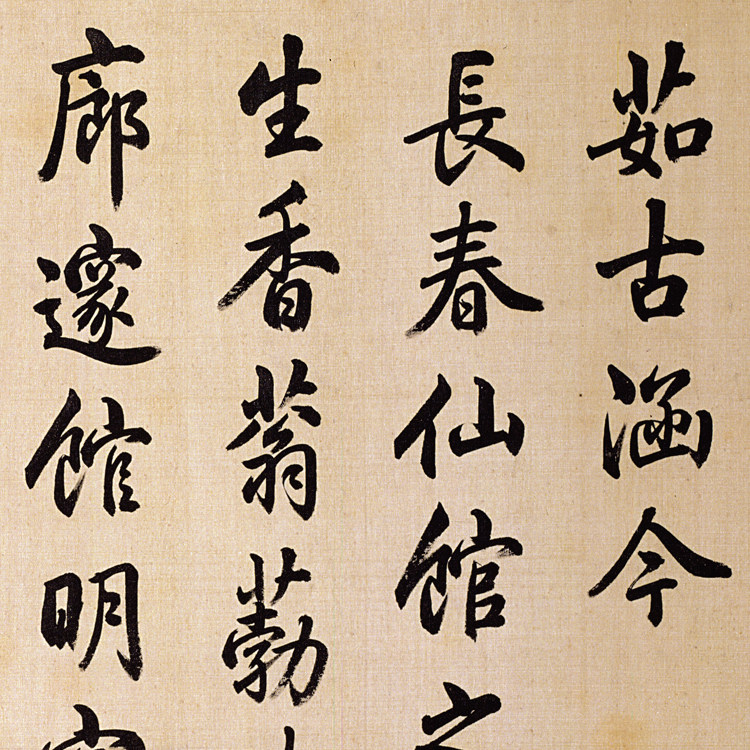 茹古涵今
長春仙館之
生香蓊勃
廊邃館明